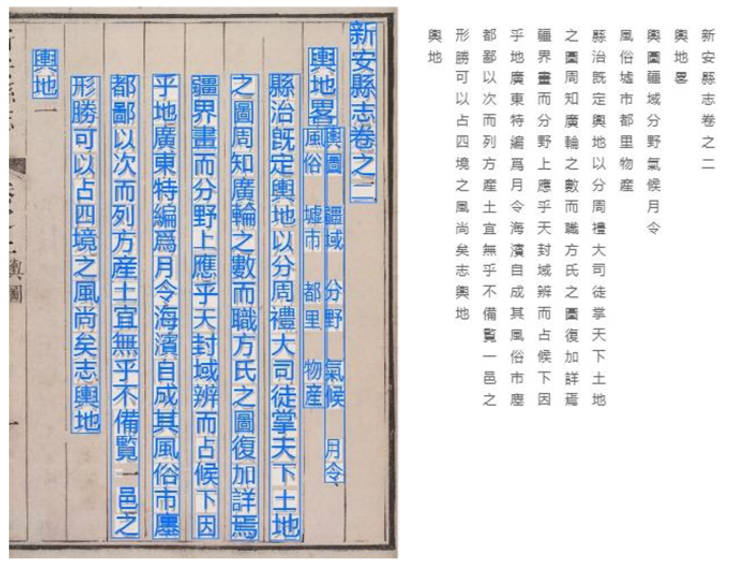 新安縣志卷之二
輿地畧
輿圖 疆域 分野 氣候 月令
風俗 墟市 都里 物産
縣治既定輿地以分周禮大司徒掌天下土地
之圖周知廣輪之數而職方氏之圖復加詳焉
疆界畫而分野上應乎天封域辨而占候下因
乎地廣東特編爲月令海濱自成其風俗市廛
都鄙以次而列方産土宜無乎不備覧一邑之
形勝可以占四境之風尚矣志輿地
輿地 一
輿圖
新安縣志卷之二
輿地畧
輿圖疆域分野氣候月令
風俗墟市都里物産
縣治既定輿地以分周禮大司徒掌天下土地
之圖周知廣輪之數而職方氏之圖復加詳焉
疆界畫而分野上應乎天封域辨而占候下因
乎地廣東特編爲月令海濱自成其風俗市廛
都鄙以次而列方産土宜無乎不備覧一邑之
形勝可以占四境之風尚矣志輿地
輿地